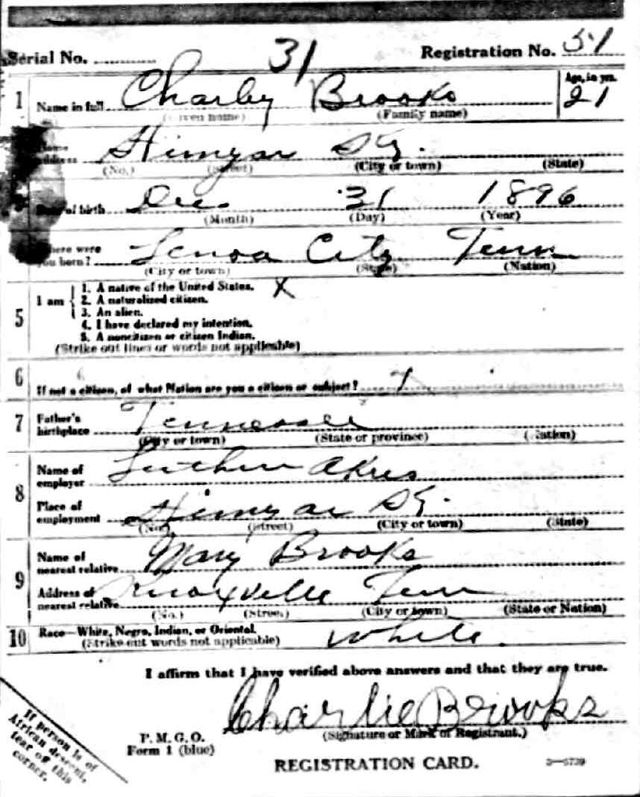 Serial No. 31 Registration No. 51
1 Name in full Charley Brooks Age, in yrs. 21
(Given name) (Family name)
Home address Himyar Ky.
(No.) (Street) (City or town) (State)
3 Date of birth Dec 31 1896
(Month) (Day) (Year)
Where were you born? Lenoa City Tenn
(City or town) (State) (Nation)
5 I am
1. A native of the United States. X
2. A naturalized citizen.
3. An alien.
4. I have declared my intention.
5. A noncitizen or citizen Indian.
(Strike out lines or words not applicable)
6 If not a citizen, of what Nation are you a citizen or subject?
7 Father's birthplace Tennessee
(City or town) (State or province) (Nation)
8 Name of employer Luther Akers
Place of employment Himyar Ky.
(No.) (Street) (City or town) (State)
9 Name of nearest relative Mary Brooks
Address of nearest relative Knoxville Tenn
(No.) (Street) (City or town) (State or Nation)
10 Race—White, Negro, Indian, or Oriental. White
(Strike out words not applicable)
I affirm that I have verified above answers and that they are true.
Charlie Brooks
P. M. G. O. (Signature or Mark of Registrant.)
Form 1 (blue)
REGISTRATION CARD. 3—5739
If person is of
African descent,
tear off this
corner.